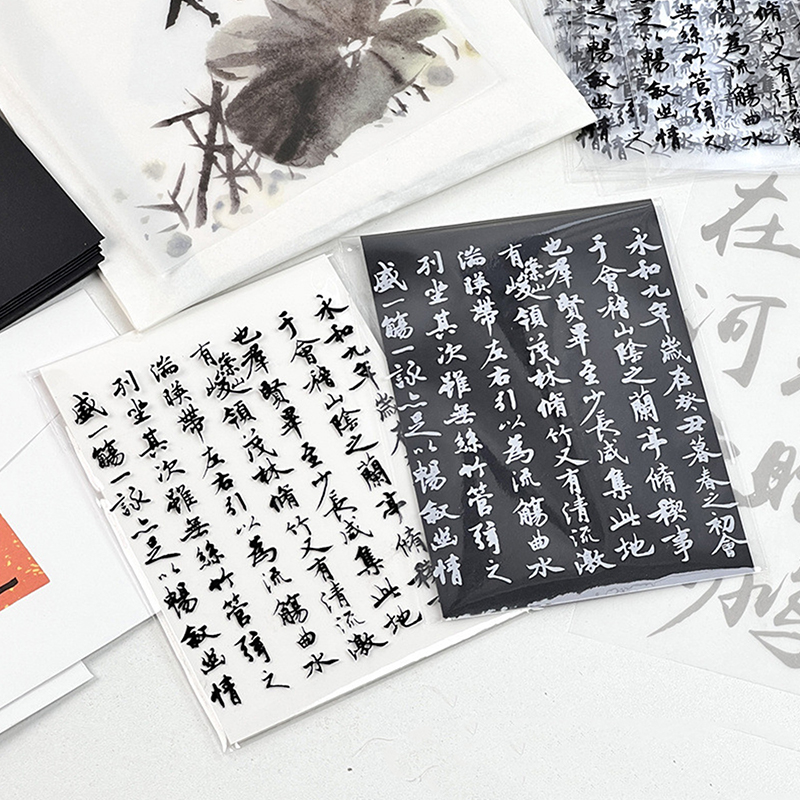 脩竹又有清流
為流觴曲水
無絲竹管弦之
足以暢敘幽情
永和九年歲在癸丑暮春之初會
于會稽山陰之蘭亭脩稧事
也羣賢畢至少長咸集此地
有崇山峻領茂林脩竹又有清流激
湍暎帶左右引以為流觴曲水
列坐其次雖無絲竹管弦之
盛一觴一詠亦足以暢敘幽情
永和九年歲
于會稽山陰之蘭亭脩稧
也羣賢畢至少長咸集此地
有崇山峻領茂林脩竹又有清流激
湍暎帶左右引以為流觴曲水
列坐其次雖無絲竹管弦之
盛一觴一詠亦足以暢敘幽情
在河